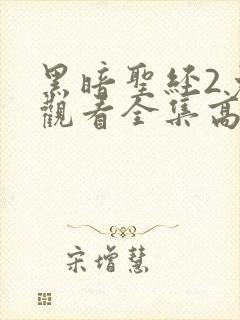 黑暗聖經2
觀看全集高
宋增慧